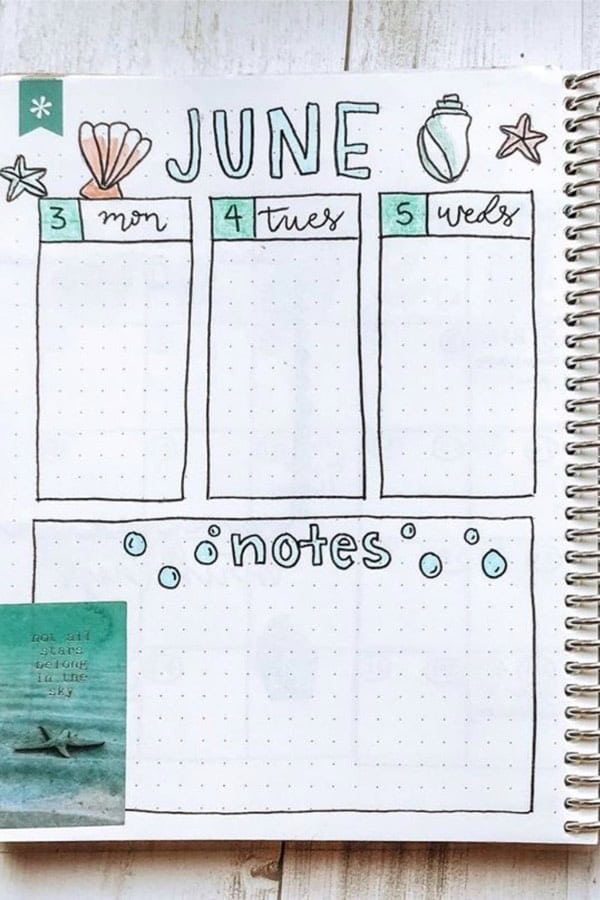 JUNE
3 mon
4 tues
5 weds
notes
not all
stars
belong
in the
sky